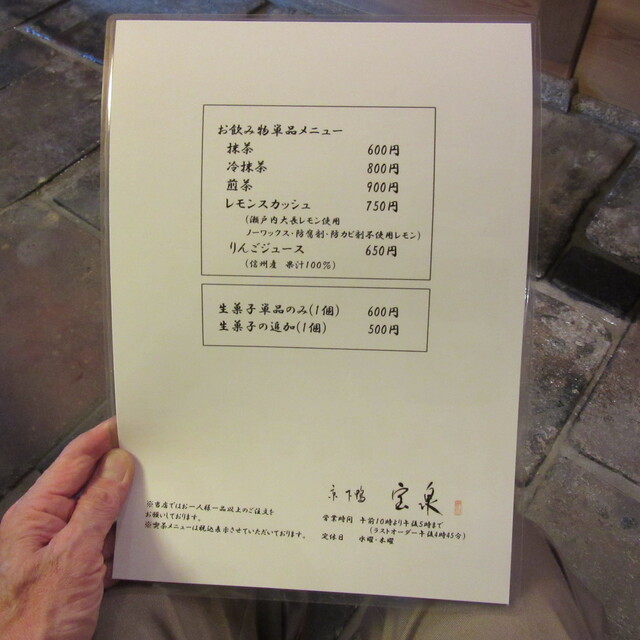 お飲み物単品メニュー
抹茶 600円
冷抹茶 800円
煎茶 900円
レモンスカッシュ 750円
(瀬戸内大長レモン使用
ノーワックス・防腐剤・防カビ剤不使用レモン)
りんごジュース 650円
(信州産 果汁100%)
生菓子単品のみ(1個) 600円
生菓子の追加(1個) 500円
京下鴨 宝泉
※当店ではお一人様一品以上のご注文を
お願いしております。
※喫茶メニューは税込表示させていただいております。
営業時間 午前10時より午後5時まで
(ラストオーダー午後4時45分)
定休日 水曜・木曜